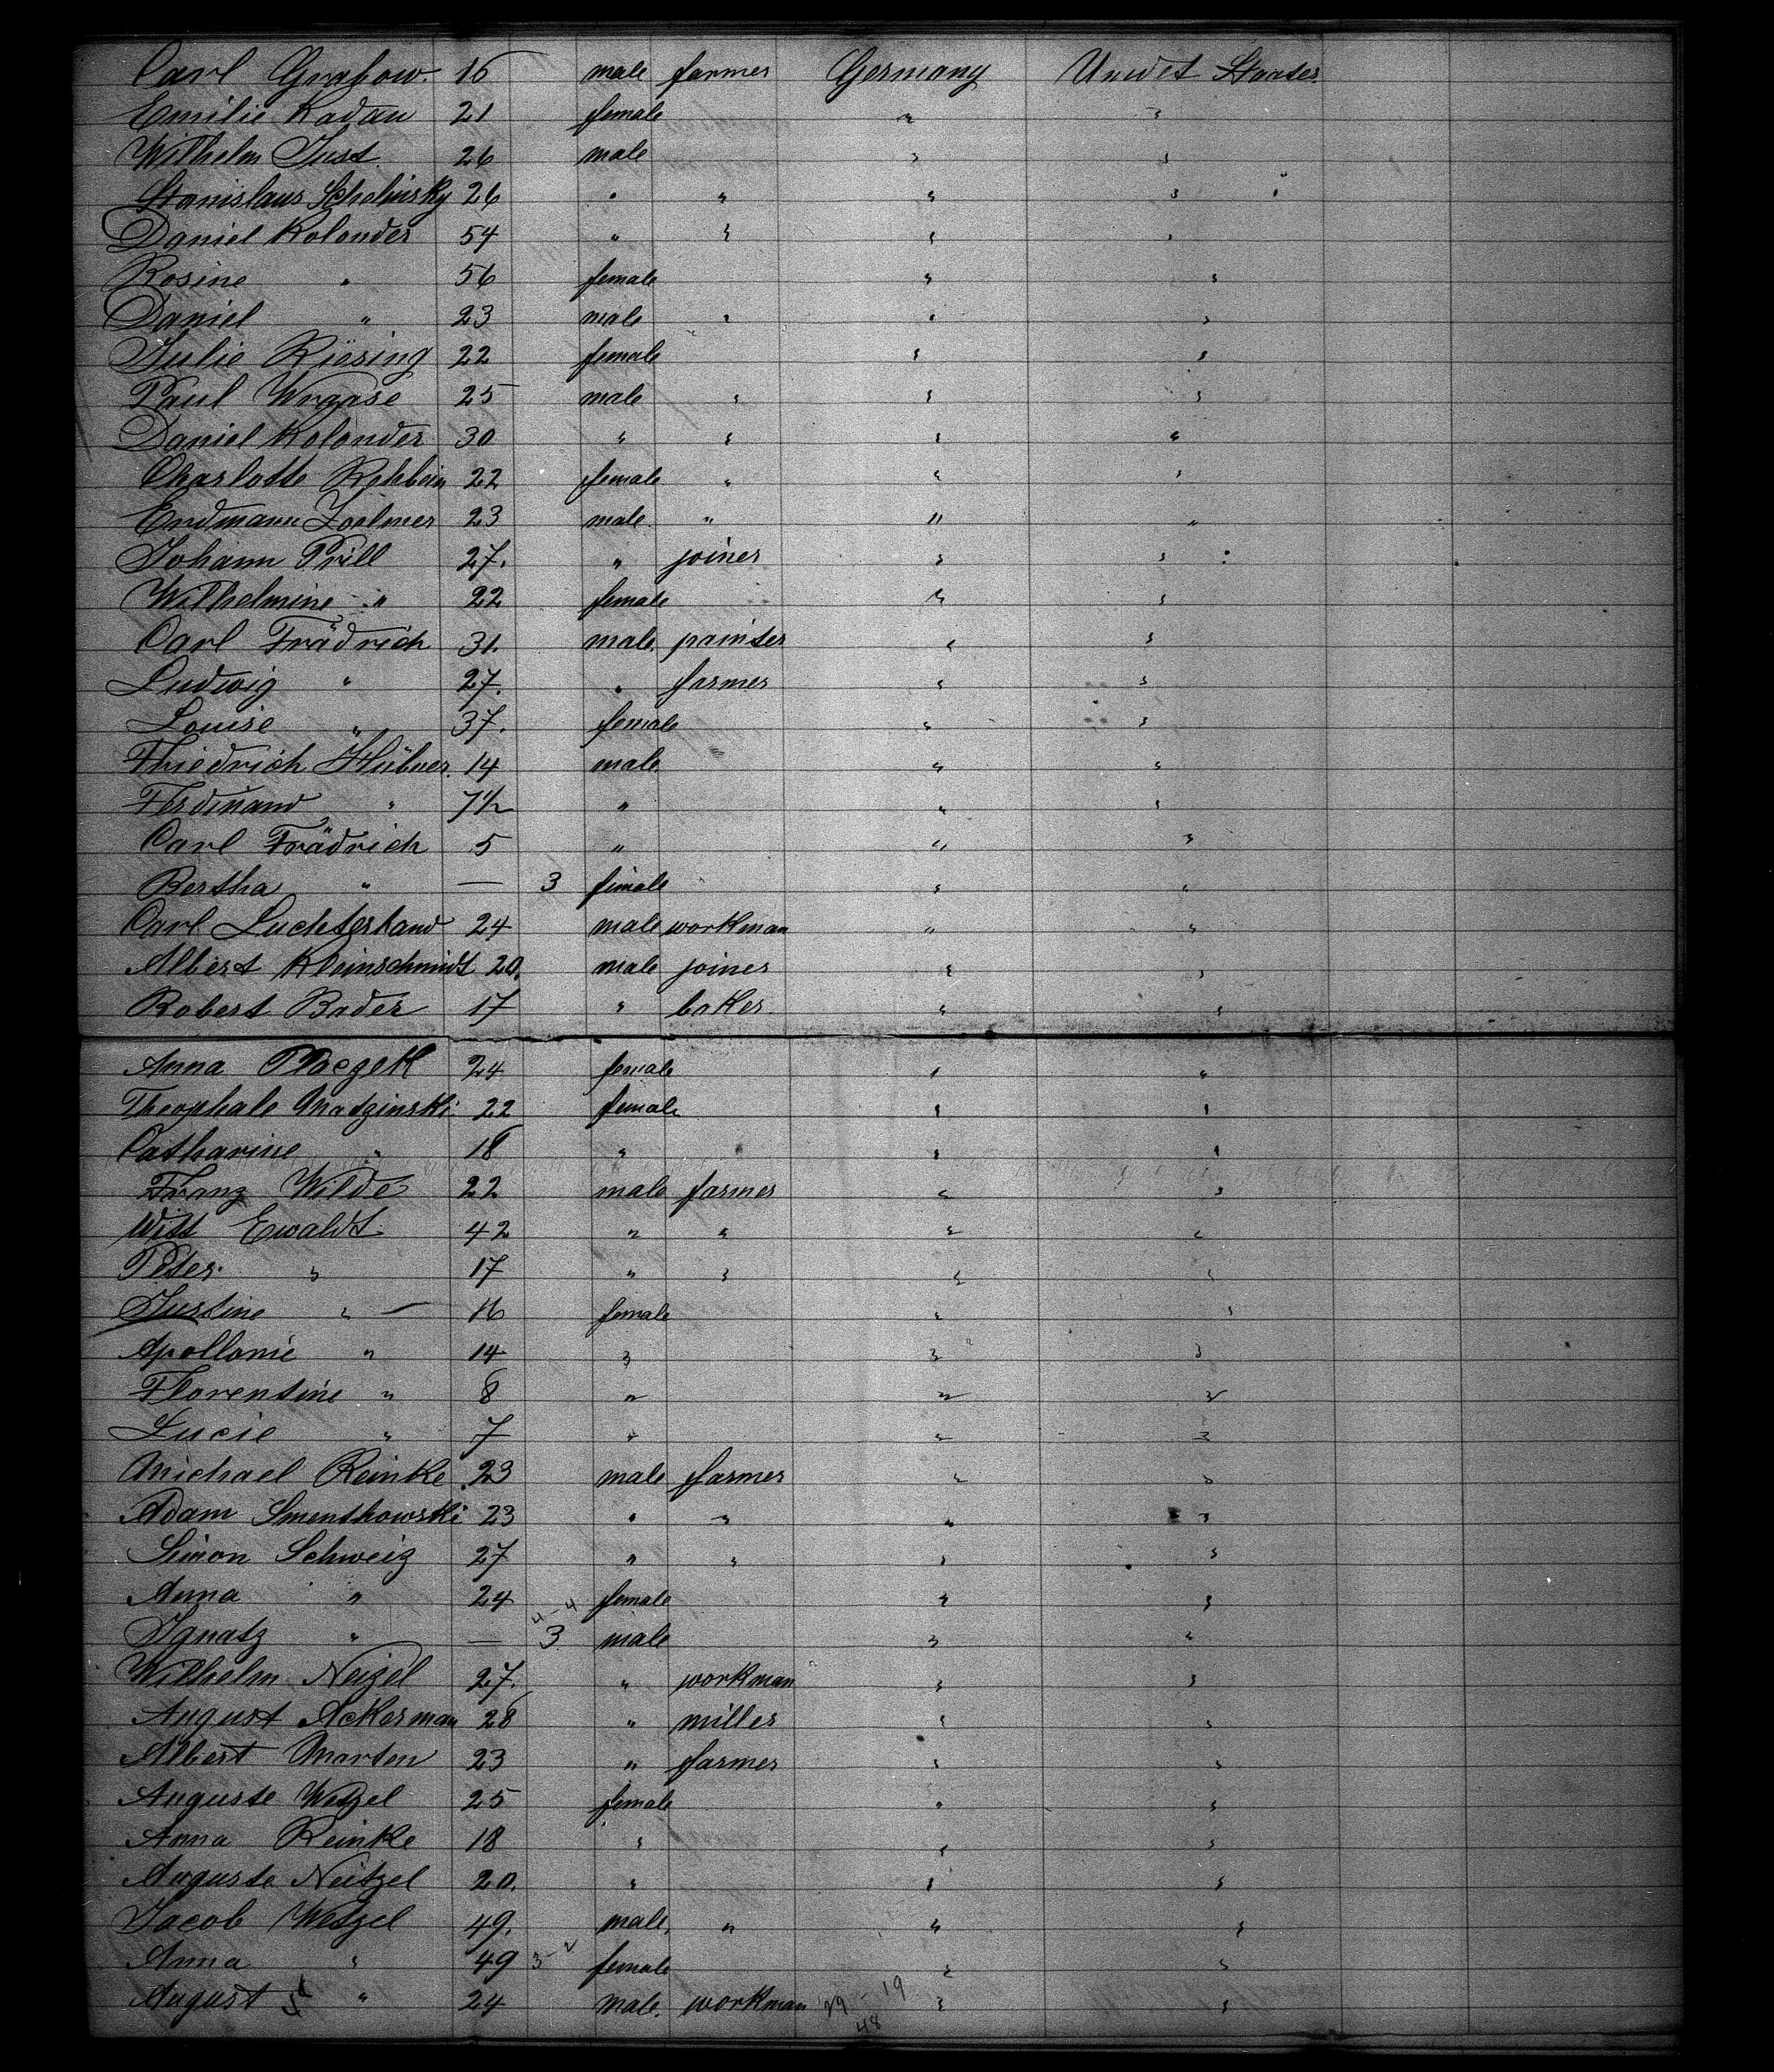 Carl Grabow. 16 male farmer Germany Unidet Staates.
Emilie Radau 21 female " "
Wilhelm Just. 26 male " "
Stanislaus Schelinsky 26 " " " "
Daniel Kolander 54 " " " "
Rosine " 56 female " "
Daniel " 23 male " " "
Julie Riesing 22 female " "
Paul Wraase 25 male " " "
Daniel Kolander 30 " " " "
Charlotte Rehbein 22 female " " "
Erdmann 23 male " " "
Johann Prill 27. " joiner " "
Wilhelmine " 22 female " "
Carl Frädrich 31. male. painter " "
Ludwig " 27. " farmer " "
Louise " 37. female " "
Friedrich Hübner. 14 male " "
Ferdinand " 7½ " " "
Carl Frädrich 5 " " "
Bertha " — 3 female " "
Carl Luchterhand 24 male workman " "
Albert Kleinschmidt 20. male joiner " "
Robert Bader 17 " baker. " "
Anna 24 female " "
Theophale Matzinski 22 female " "
Catharine " 18 " " "
Franz Wilde 22 male farmer " "
Witt Ewaldt 42 " " " "
Peter " 17 " " " "
Justine " — 16 female " "
Apollonie " 14 " " "
Florentine " 8 " " "
Lucie " 7 " " "
Michael Reinke. 23 male farmer " "
Adam Smenthowski 23 " " " "
Simon Schweiz 27 " " " "
Anna " 24 female " "
4-4
Ignatz " — 3 male " "
Wilhelm Neizel 27. " workman " "
August Ackerman 28 " miller " "
Albert Marten 23 " farmer " "
Auguste Wetzel 25 female " "
Anna Reinke 18 " " "
Auguste Neitzel 20. " " "
Jacob Wetzel 49. male, " " "
Anna " 49 3-2 female " "
August " 24 male. workman 29-19 " "
48